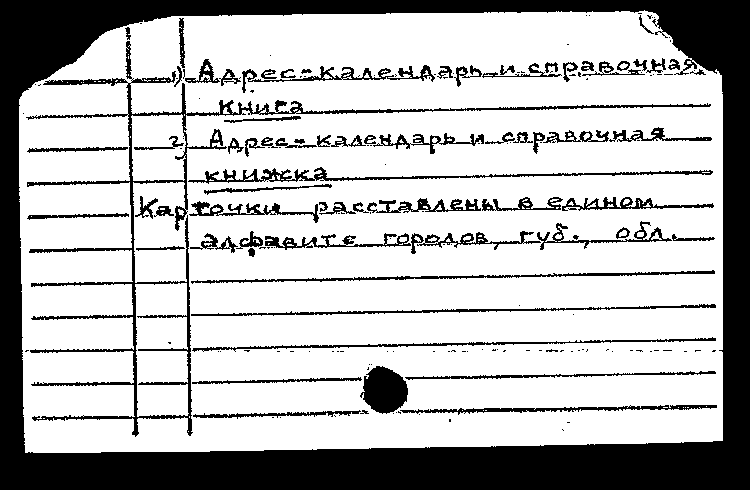 1) Адрес-календарь и справочная
книга
2) Адрес-календарь и справочная
книжка
Карточки расставлены в едином
алфавите городов, губ., обл.